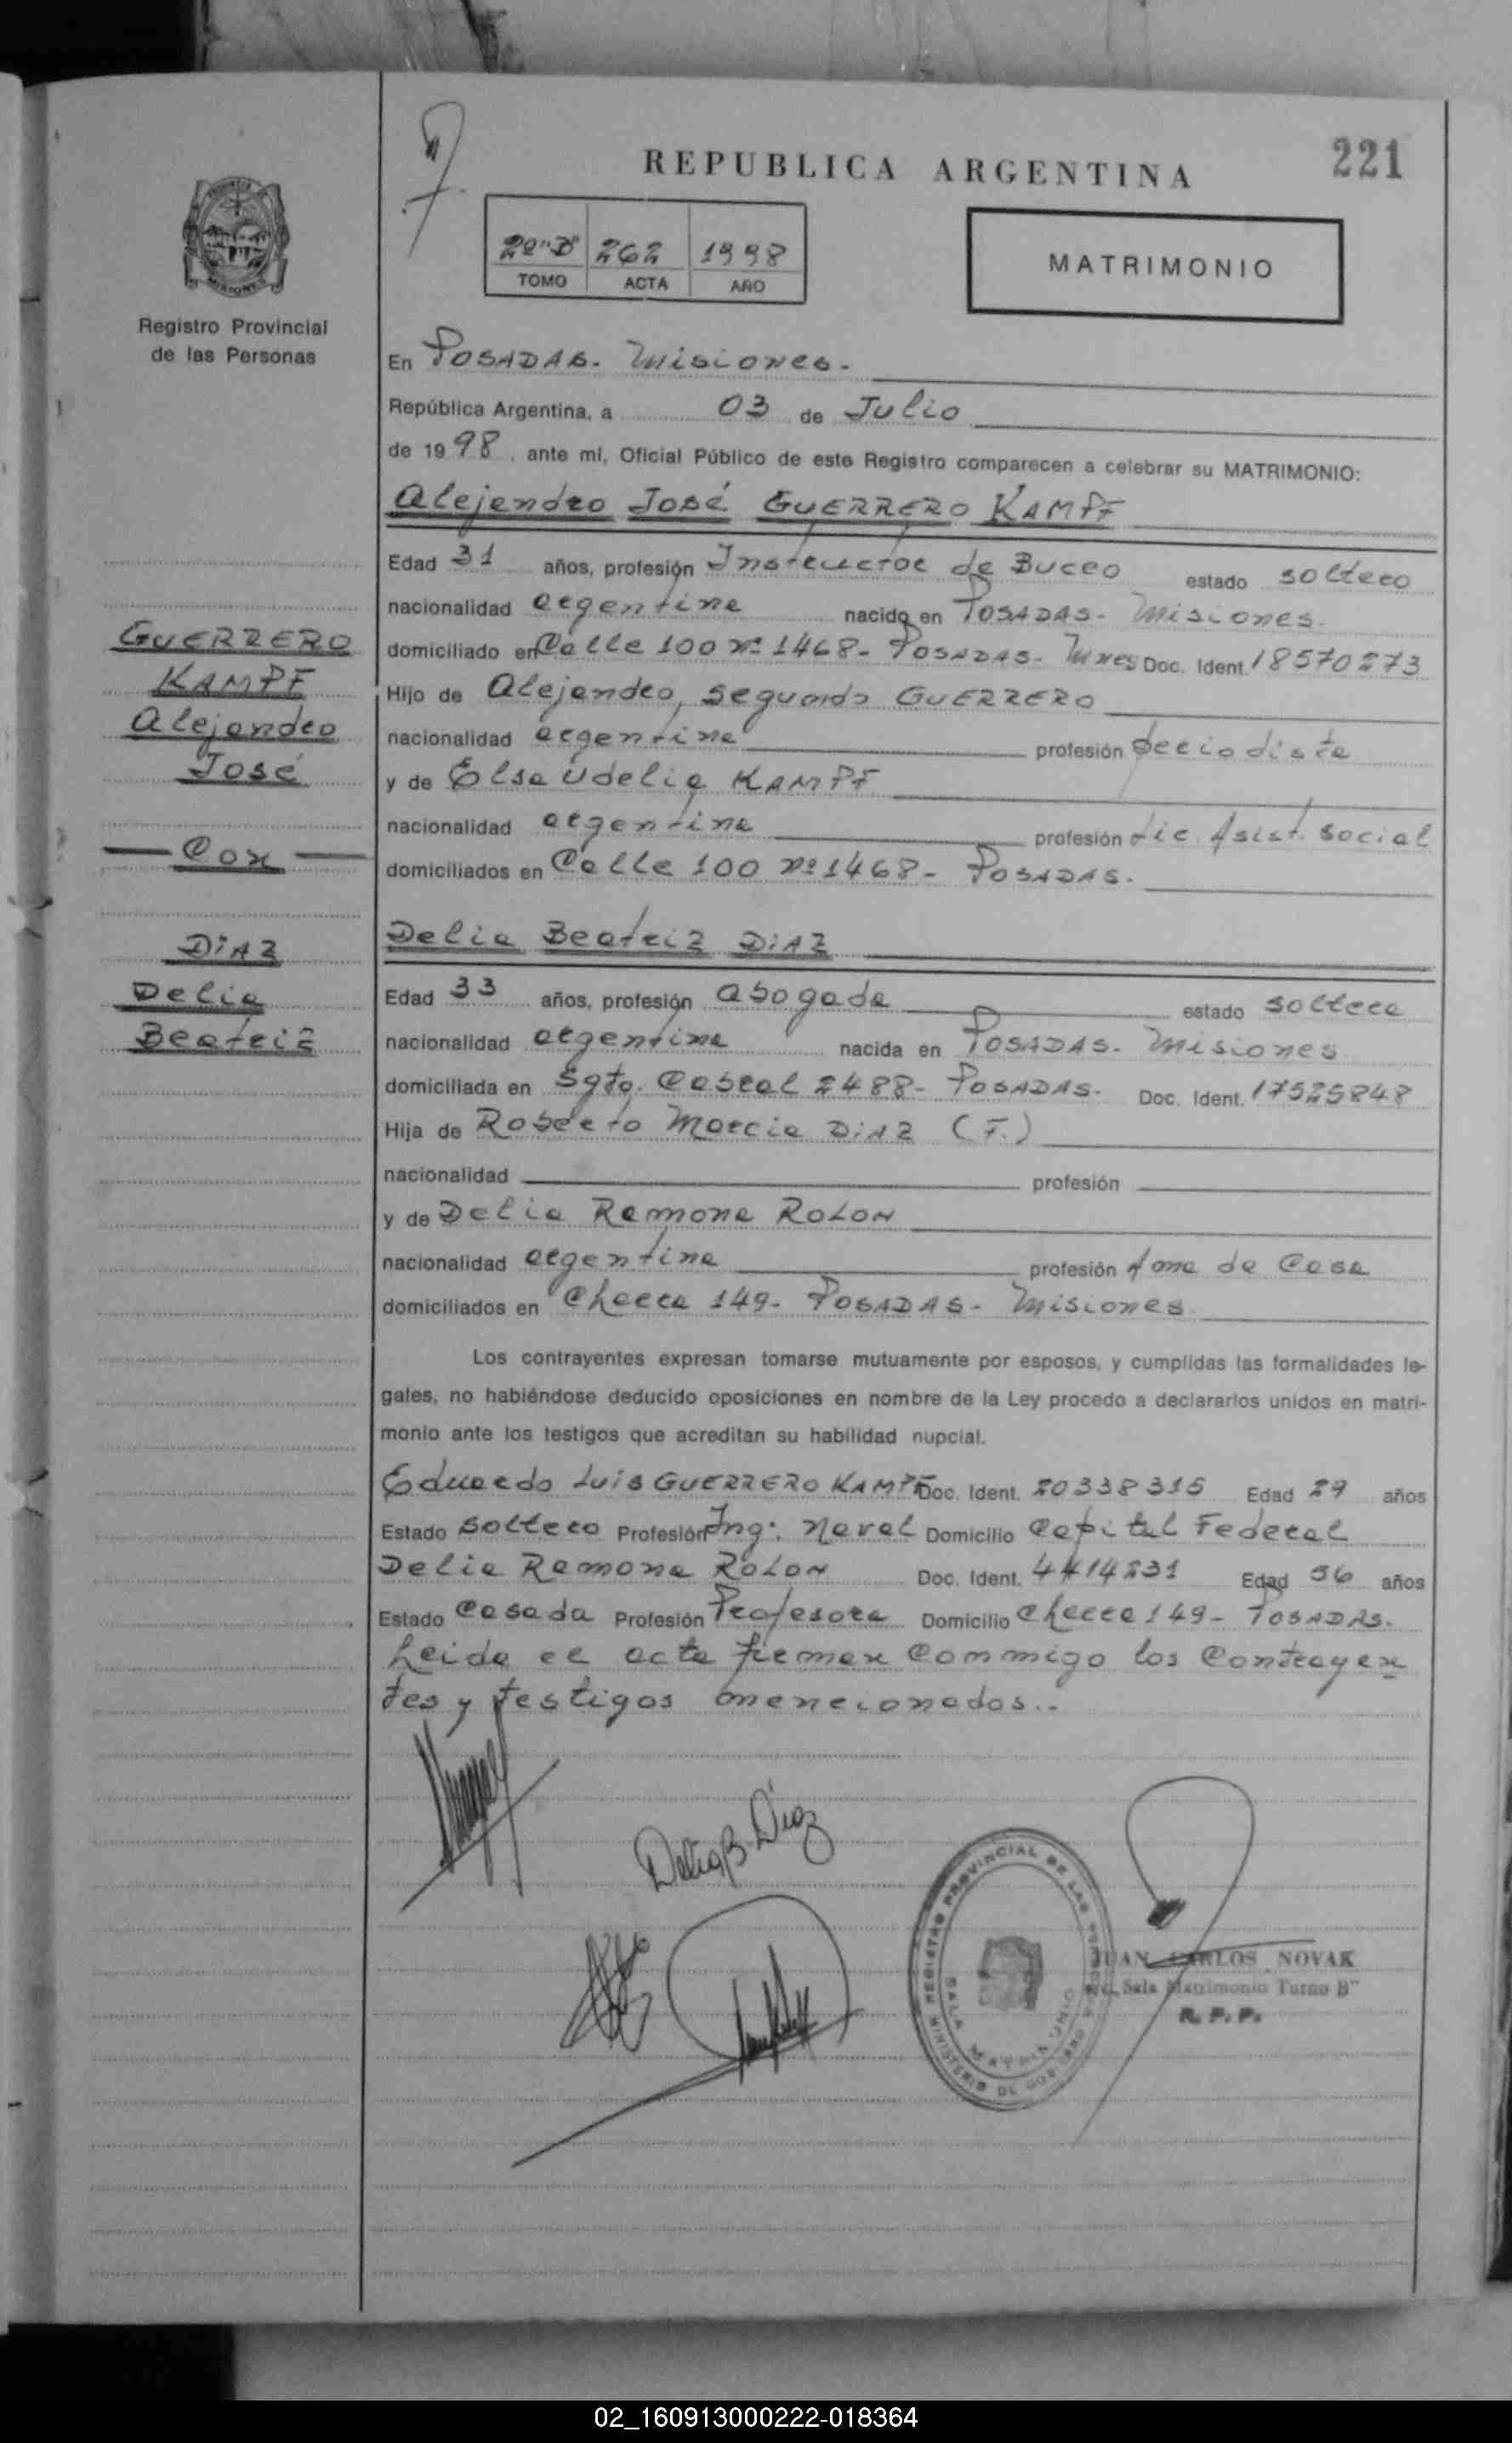 221
REPUBLICA ARGENTINA
2º"B" 262 1998
TOMO ACTA AÑO
MATRIMONIO
Registro Provincial
de las Personas
En POSADAS. Misiones.-
República Argentina, a 03 de Julio
de 1998, ante mí, Oficial Público de este Registro comparecen a celebrar su MATRIMONIO:
Alejandro José GUERRERO KAMPF
Edad 31 años, profesión Instructor de Buceo estado soltero
nacionalidad argentina nacido en POSADAS- Misiones.
domiciliado en Calle 100 Nº 1468- POSADAS- Mnes Doc. Ident. 18570273
Hijo de Alejandro, Segundo GUERRERO
nacionalidad argentina profesión periodista
y de Elsa Udelia KAMPF
nacionalidad argentina profesión Lic. Asist. Social
domiciliados en Calle 100 Nº 1468- POSADAS.
GUERRERO
KAMPF
Alejandro
José
— Con —
DIAZ
Delia
Beatriz
Delia Beatriz DIAZ
Edad 33 años, profesión abogada estado soltera
nacionalidad argentina nacida en POSADAS- Misiones
domiciliada en Sgto. Cabral 2488- POSADAS. Doc. Ident. 17525848
Hija de Roberto Marcia DIAZ (F.)
nacionalidad profesión
y de Delia Ramona ROLON
nacionalidad argentina profesión Ama de Casa
domiciliados en Checca 149- POSADAS- Misiones
Los contrayentes expresan tomarse mutuamente por esposos, y cumplidas las formalidades le-
gales, no habiéndose deducido oposiciones en nombre de la Ley procedo a declararlos unidos en matri-
monio ante los testigos que acreditan su habilidad nupcial.
Eduardo Luis GUERRERO KAMPF Doc. Ident. 20338315 Edad 29 años
Estado Soltero Profesión Ing: Naval Domicilio Capital Federal
Delia Ramona ROLON Doc. Ident. 4414231 Edad 56 años
Estado Casada Profesión Profesora Domicilio Checca 149- POSADAS.
Leida el acta firman conmigo los Contrayen
tes y testigos mencionados..-
Delia B. Díaz
REGISTRO PROVINCIAL DE LAS
SALA MATRIMONIO
MINISTERIO DE GOBIERNO
JUAN CARLOS NOVAK
Sala Matrimonio Turno B"
R. P. P.
02_160913000222-018364